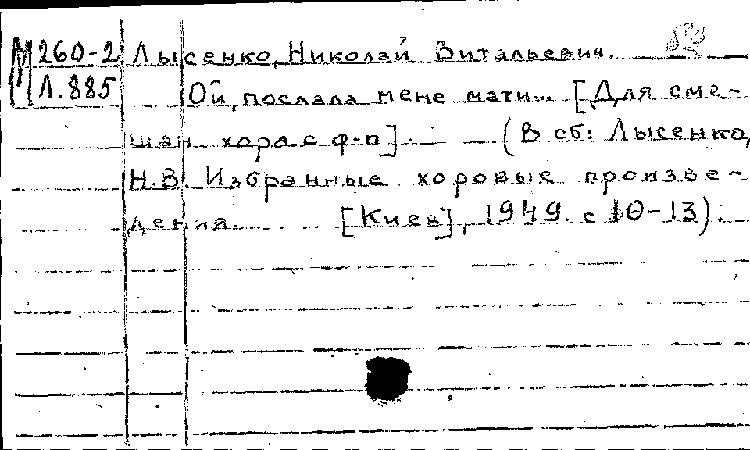 М 260-2 Лысенко, Николай Витальевич.
Л.885 Ой, послала мене мати... [Для сме-
шан. хора с ф-п]. — (В сб: Лысенко,
Н.В. Избранные хоровые произве-
дения. [Киев], 1949. с 10-13).